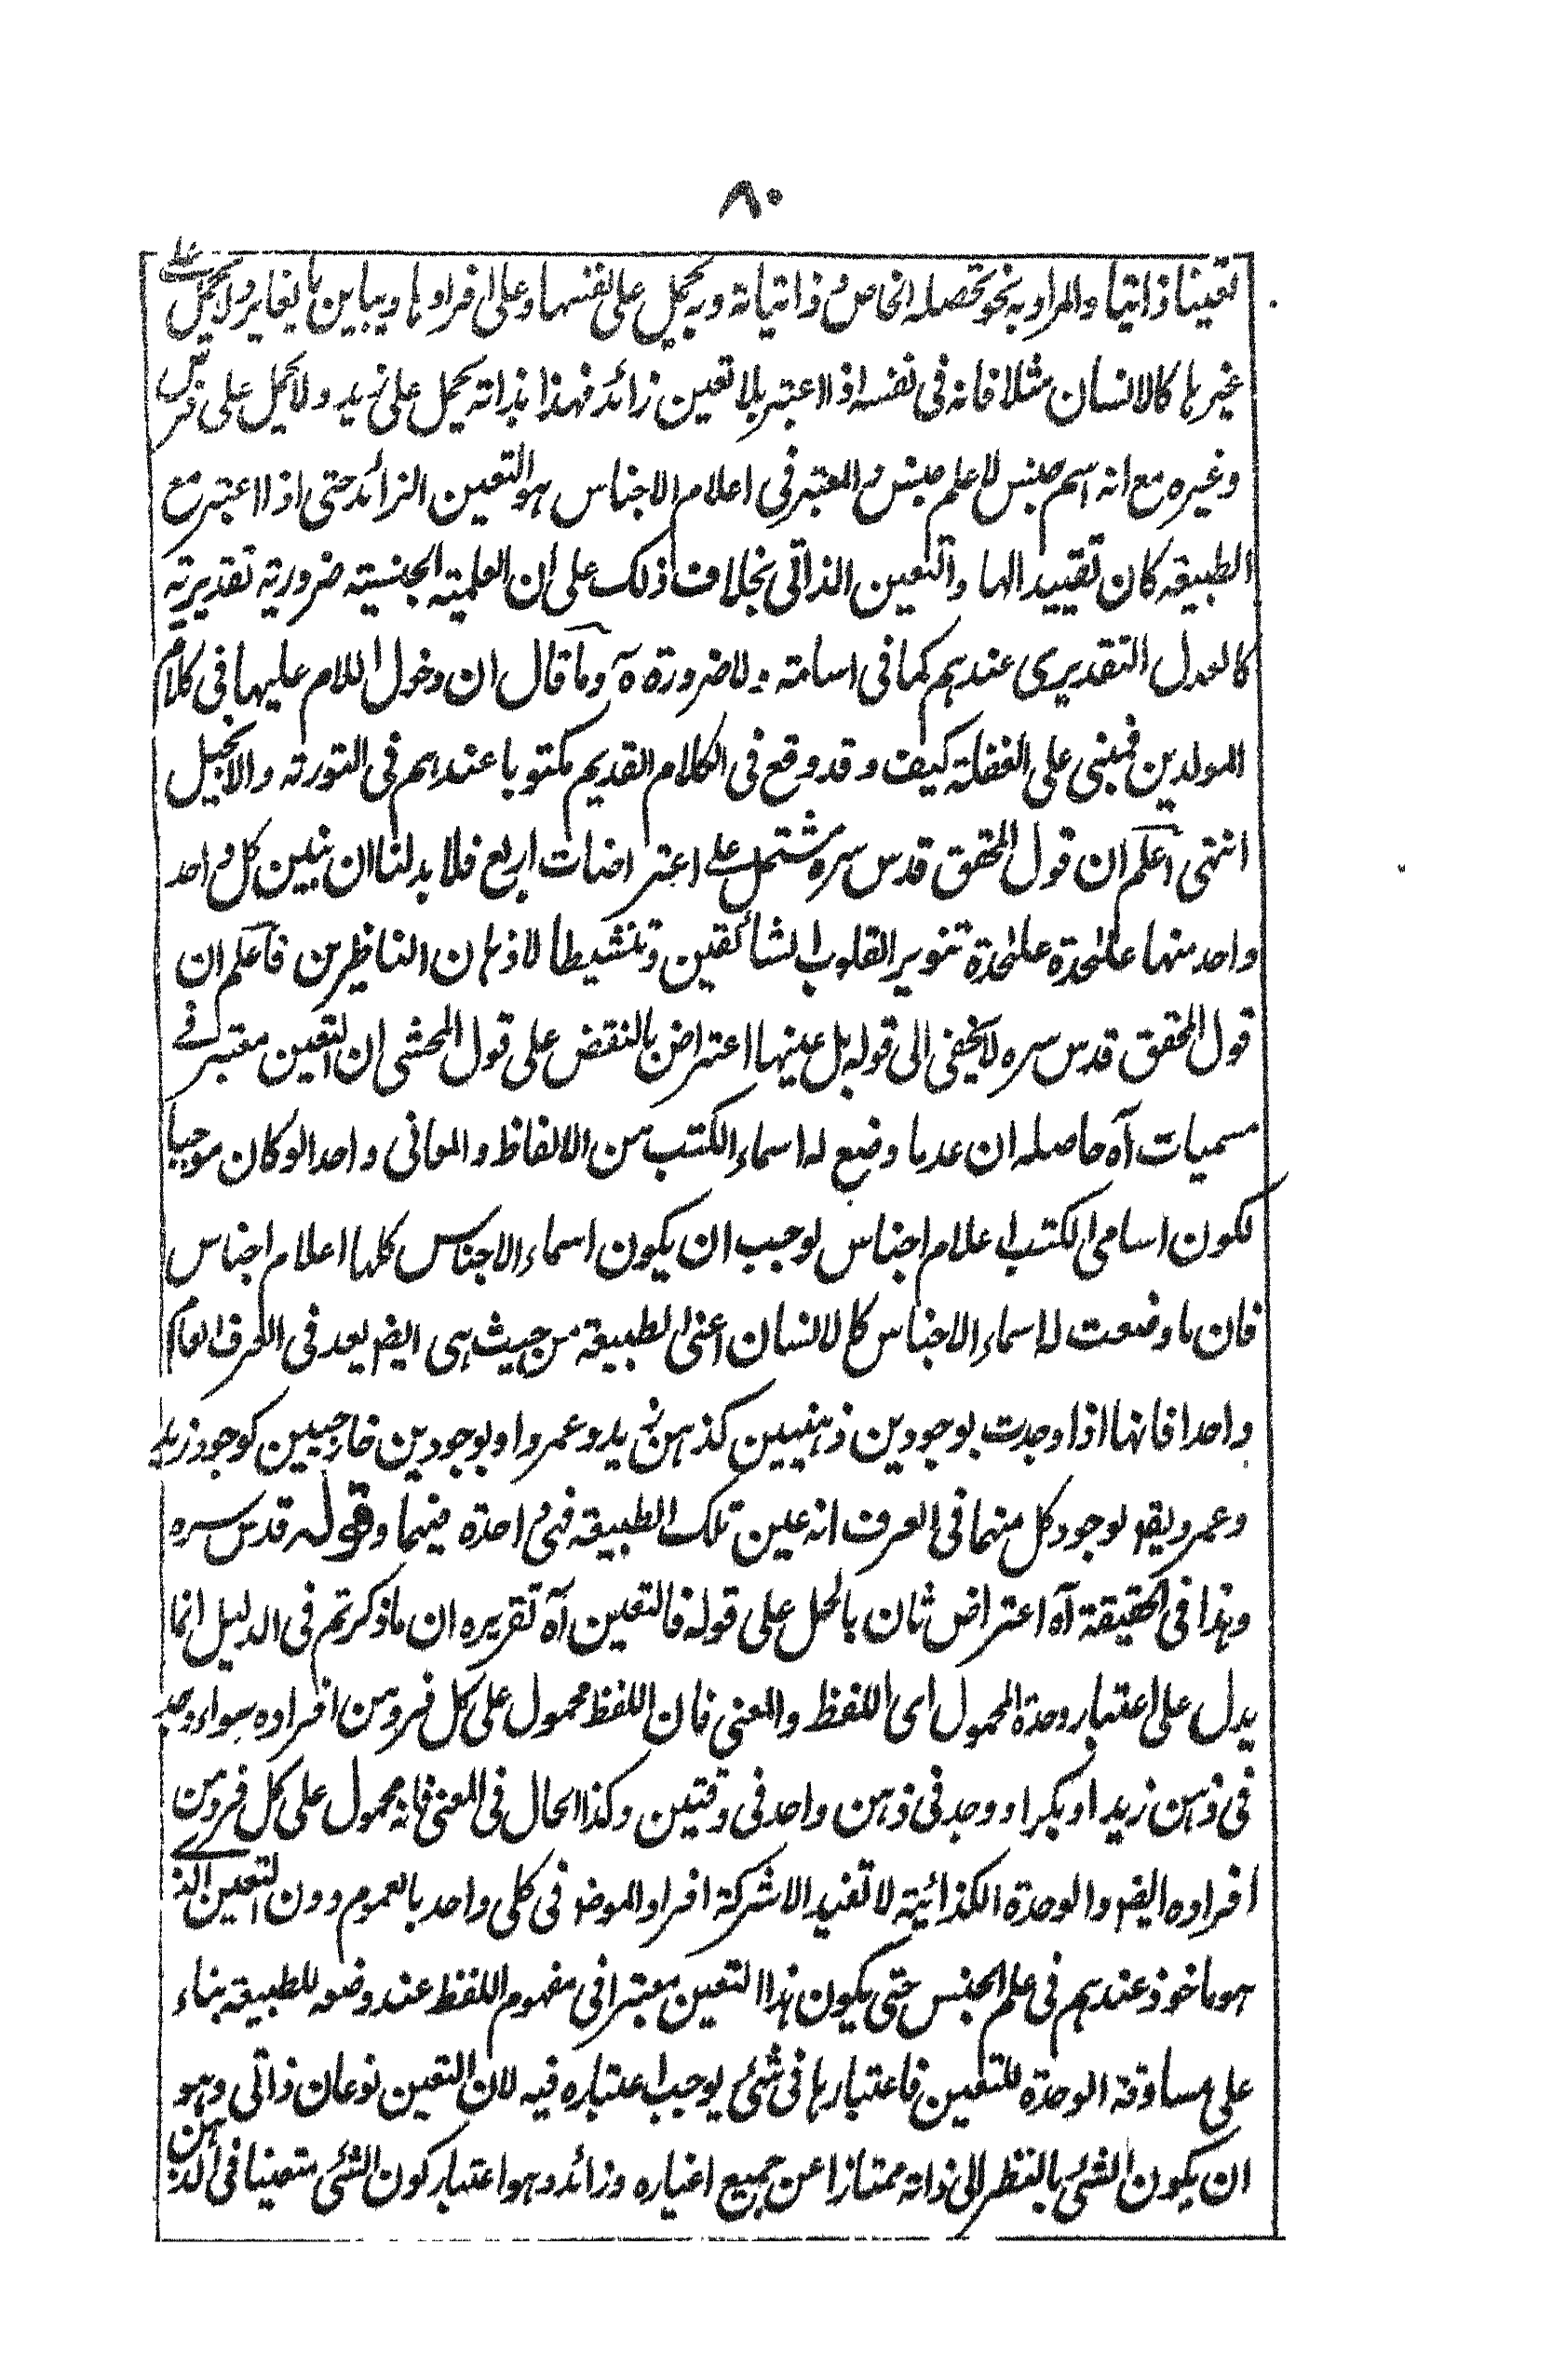 ٨٠
تعينا ذاتيا والمراد به نحو تحصله الخاص وذاتياته وبه يحمل على نفسها وعلى افرادها ويباين ما يغايره ولا يحمل على
غيرها كالانسان مثلا فانه فى نفسه اذا اعتبر بلا تعين زائد فهذا بذاته يحمل على زيد ولا يحمل على فرس
وغيره مع انه اسم جنس لا علم جنس والمعتبر فى اعلام الاجناس هو التعين الزائد حتى اذا اعتبر مع
الطبيعة كان تقييدا لها والتعين الذاتى بخلاف ذلك على ان العلمية الجنسية ضرورية تقديرية
كالعدل التقديرى عندهم كما فى اسامة ولا ضرورة ه وما قال ان دخول اللام عليها فى كلام
المولدين فمبنى على الغفلة كيف وقد وقع فى الكلام القديم مكتوبا عندهم فى التورة والانجيل
انتهى اعلم ان قول المحقق قدس سره مشتمل على اعتراضات اربع فلا بد لنا ان نبين كل واحد
واحد منها علٰحدة علٰحدة تنوير القلوب الشائقين وتنشيطا لاذهان الناظرين فاعلم ان
قول المحقق قدس سره لا يخفى الى قوله بل عينها اعتراض بالنقض على قول المحشى ان التعين معتبر فى
مسميات آه حاصله ان عد ما وضع له اسماء الكتب من الالفاظ والمعانى واحدا لو كان موجبا
لكون اسامى الكتب اعلام اجناس لوجب ان يكون اسماء الاجناس كلها اعلام اجناس
فان ما وضعت له اسماء الاجناس كالانسان اعنى الطبيعة من حيث هى ايضا يعد فى العرف العام
واحدا فانها اذا وجدت بوجودين ذهنيين كذهن زيد وعمرو او بوجودين خارجيين كوجود زيد
وعمرو يقم لوجود كل منهما فى العرف انه عين تلك الطبيعة فهى واحدة فيهما وقوله قدس سره
وهذا فى الحقيقة آه اعتراض ثان بالحل على قوله فالتعين آه تقريره ان ما ذكرتم فى الدليل انما
يدل على اعتبار وحدة المحمول اى اللفظ والمعنى فان اللفظ محمول على كل فرد من افراده سواء وجد
فى ذهن زيد او بكر او وجد فى ذهن واحد فى وقتين وكذا الحال فى المعنى فانه محمول على كل فرد من
افراده ايضا والوحدة الكذائية لا تفيد الا شركة افراد الموضو فى كلى واحد بالعموم دون التعين الذى
هو ماخوذ عندهم فى علم الجنس حتى يكون هذا التعين معتبرا فى مفهوم اللفظ عند وضعه للطبيعة بناء
على مساوقة الوحدة للتعين فاعتبارها فى شئ يوجب اعتباره فيه لان التعين نوعان ذاتى وهو
ان يكون الشئ بالنظر الى ذاته ممتازا عن جميع اغياره وزائد وهو اعتبار كون الشئ متعينا فى الذهن